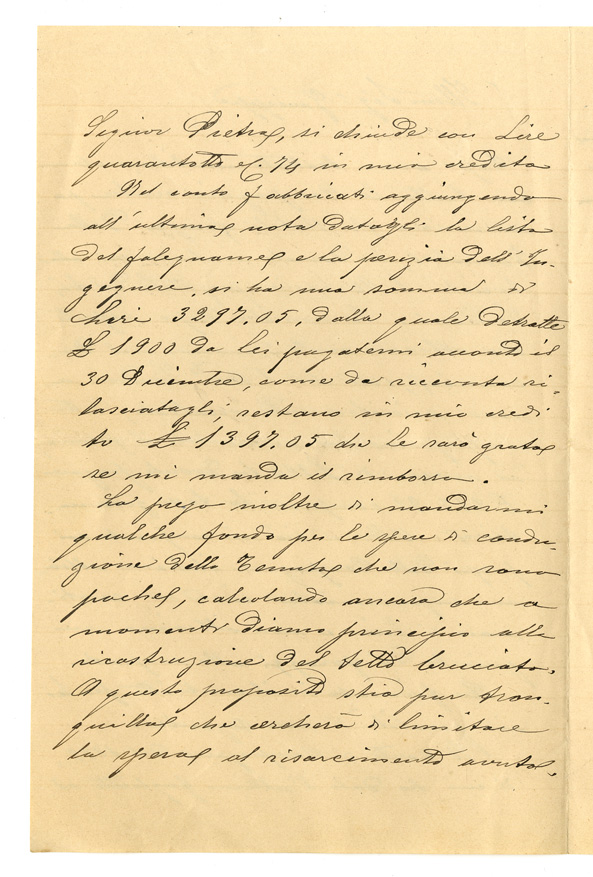 Signor Pietra, si chiude con Lire
quarantotto e C. 74 in mio credito
Nel conto fabbricati aggiungendo
all'ultima nota datagli la lista
del falegname e la perizia dell'In-
gegnere, si ha una somma di
Lire 3297.05, dalla quale detratte
£ 1900 da lei pagatemi acconto il
30 Dicembre, come da ricevuta ri-
lasciatagli, restano in mio credi
to £ 1397.05 che le sarò grata
se mi manda il rimborso.
La prego inoltre di mandarmi
qualche fondo per le spese di condu-
zione della Tenuta che non sono
poche, calcolando ancora che a
momenti diamo principio alla
ricostruzione del tetto bruciato.
A questo proposito stia pur tran-
quilla che cercherò di limitare
la spesa al risarcimento avuto.